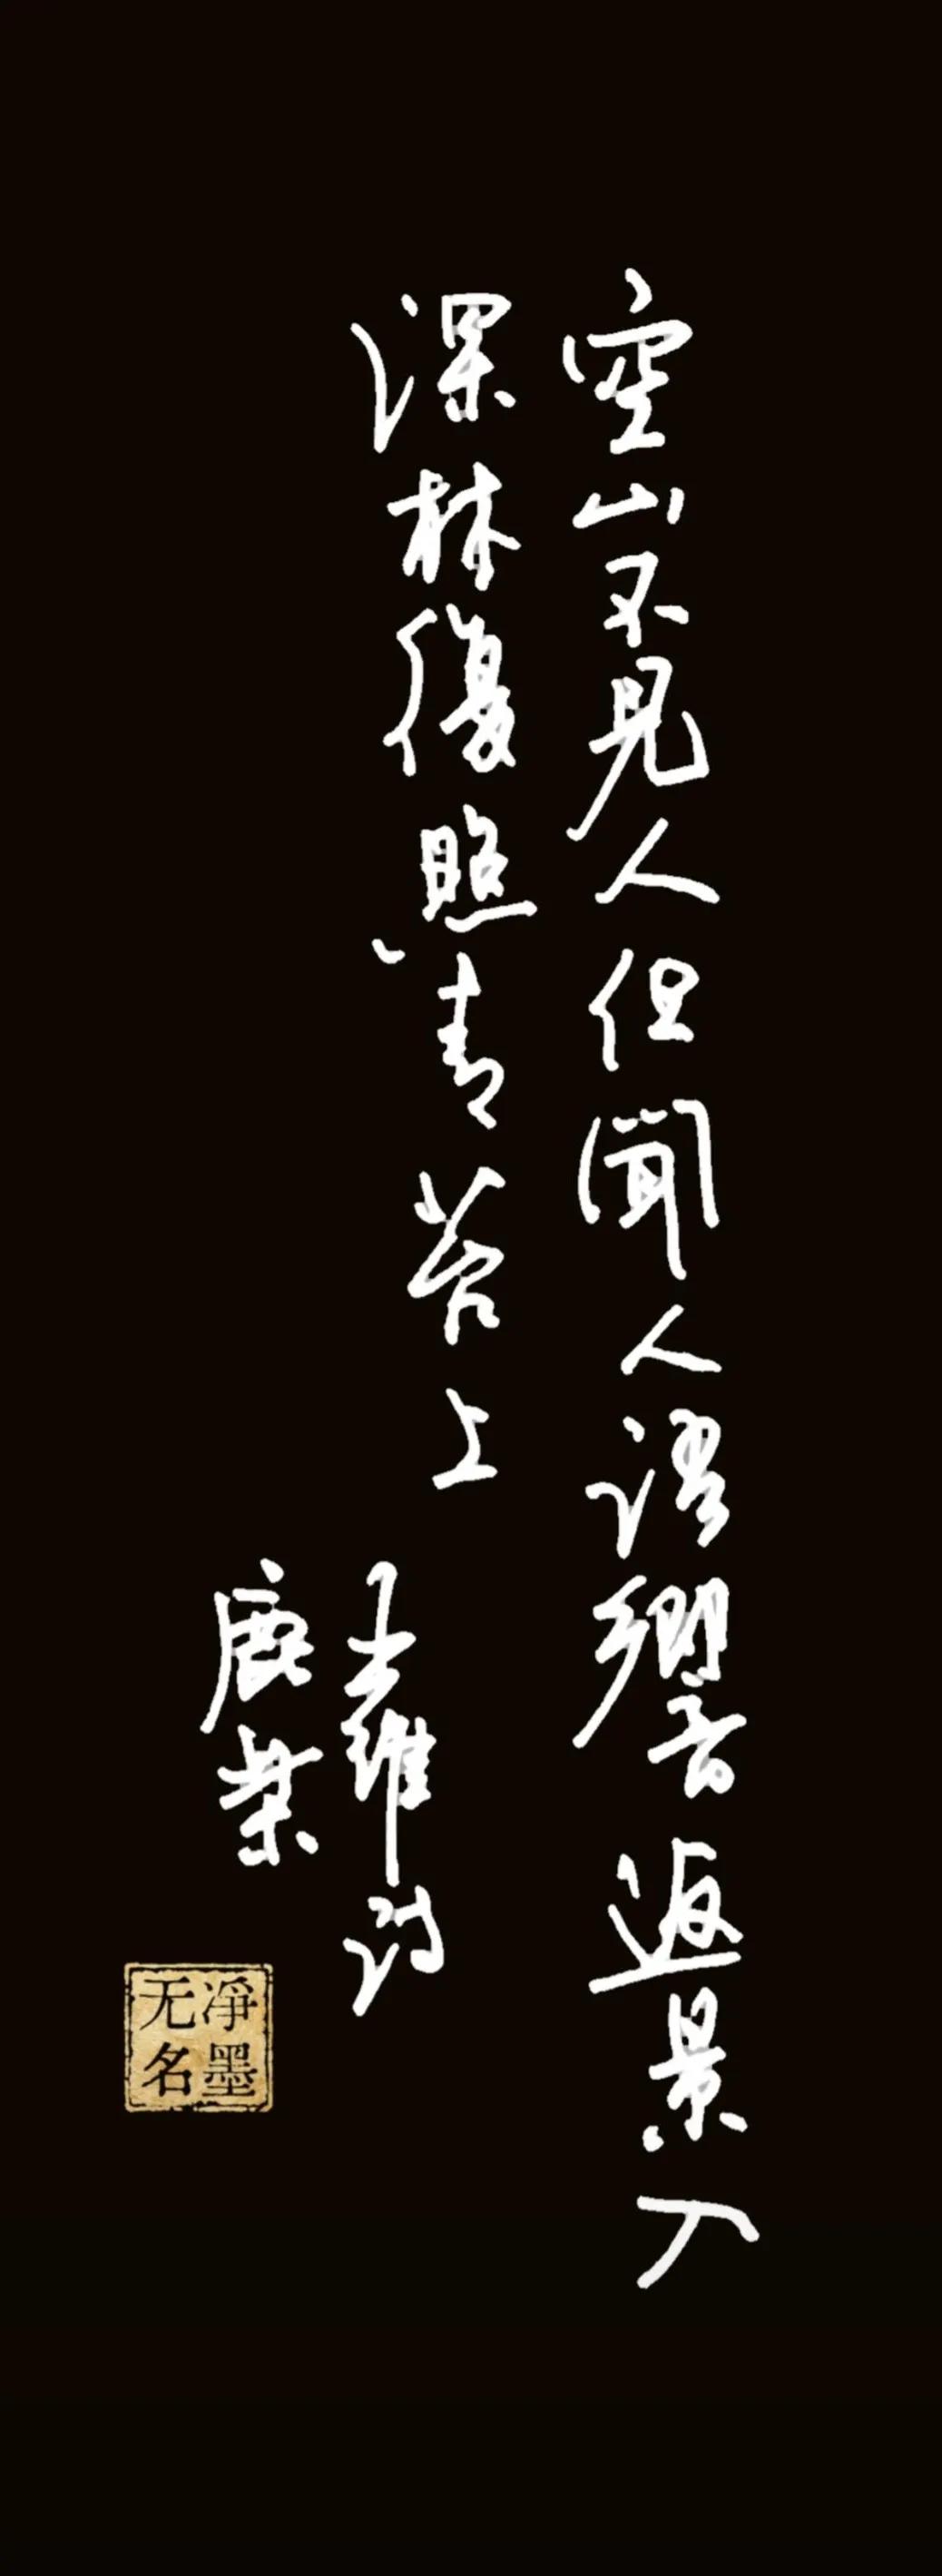 空山不見人但聞人語響返景入
深林復照青苔上
王維詩
鹿柴
凈墨
无名